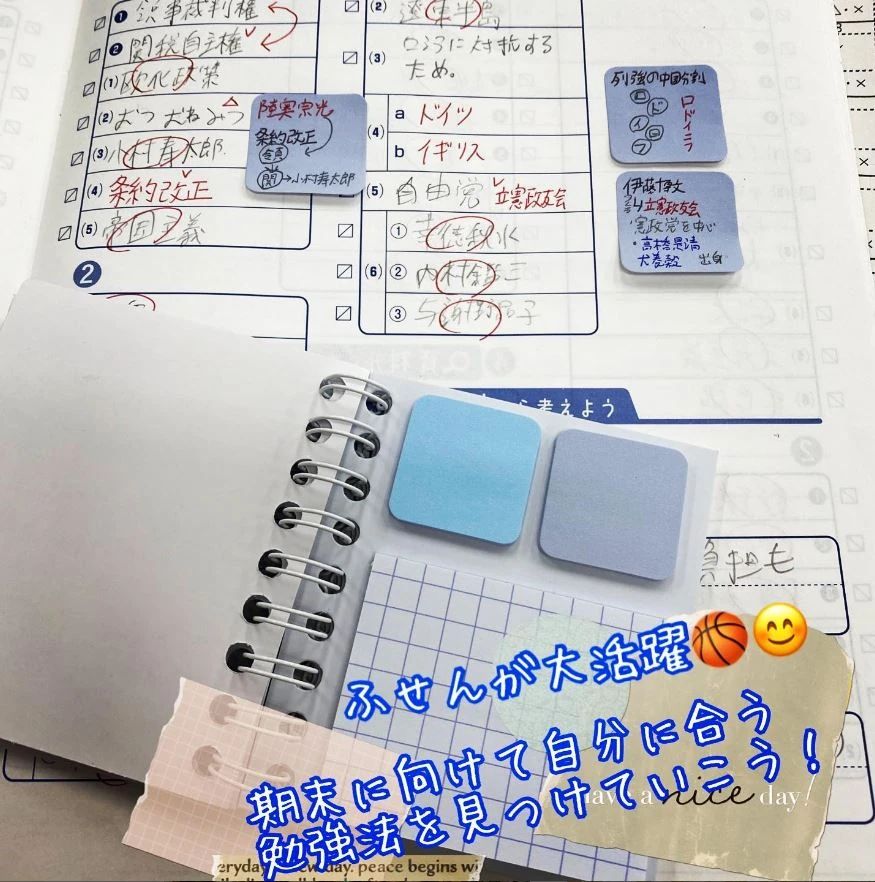 ❶ 領事裁判権
❷ 関税自主権
(1) 欧化政策
(2)
(3) 小村寿太郎
(4) 条約改正
(5) 帝国主義
❷
陸奥宗光
条約改正
関→小村寿太郎
(2) 遼東半島
(3) ロシアに対抗する
ため。
(4) a ドイツ
b イギリス
(5) 自由党 立憲政友会
(6) ① 幸徳秋水
② 内村鑑三
③ 与謝野晶子
列強の中国分割
ロ
ド
イ
ロドイニフ
伊藤博文
立憲政友会
憲政党を中心
・高橋是清
犬養毅 出身
考えよう
負担も
ふせんが大活躍🏀😊
期末に向けて自分に合う
勉強法を見つけていこう!
have a nice day!
day. peace begins wi